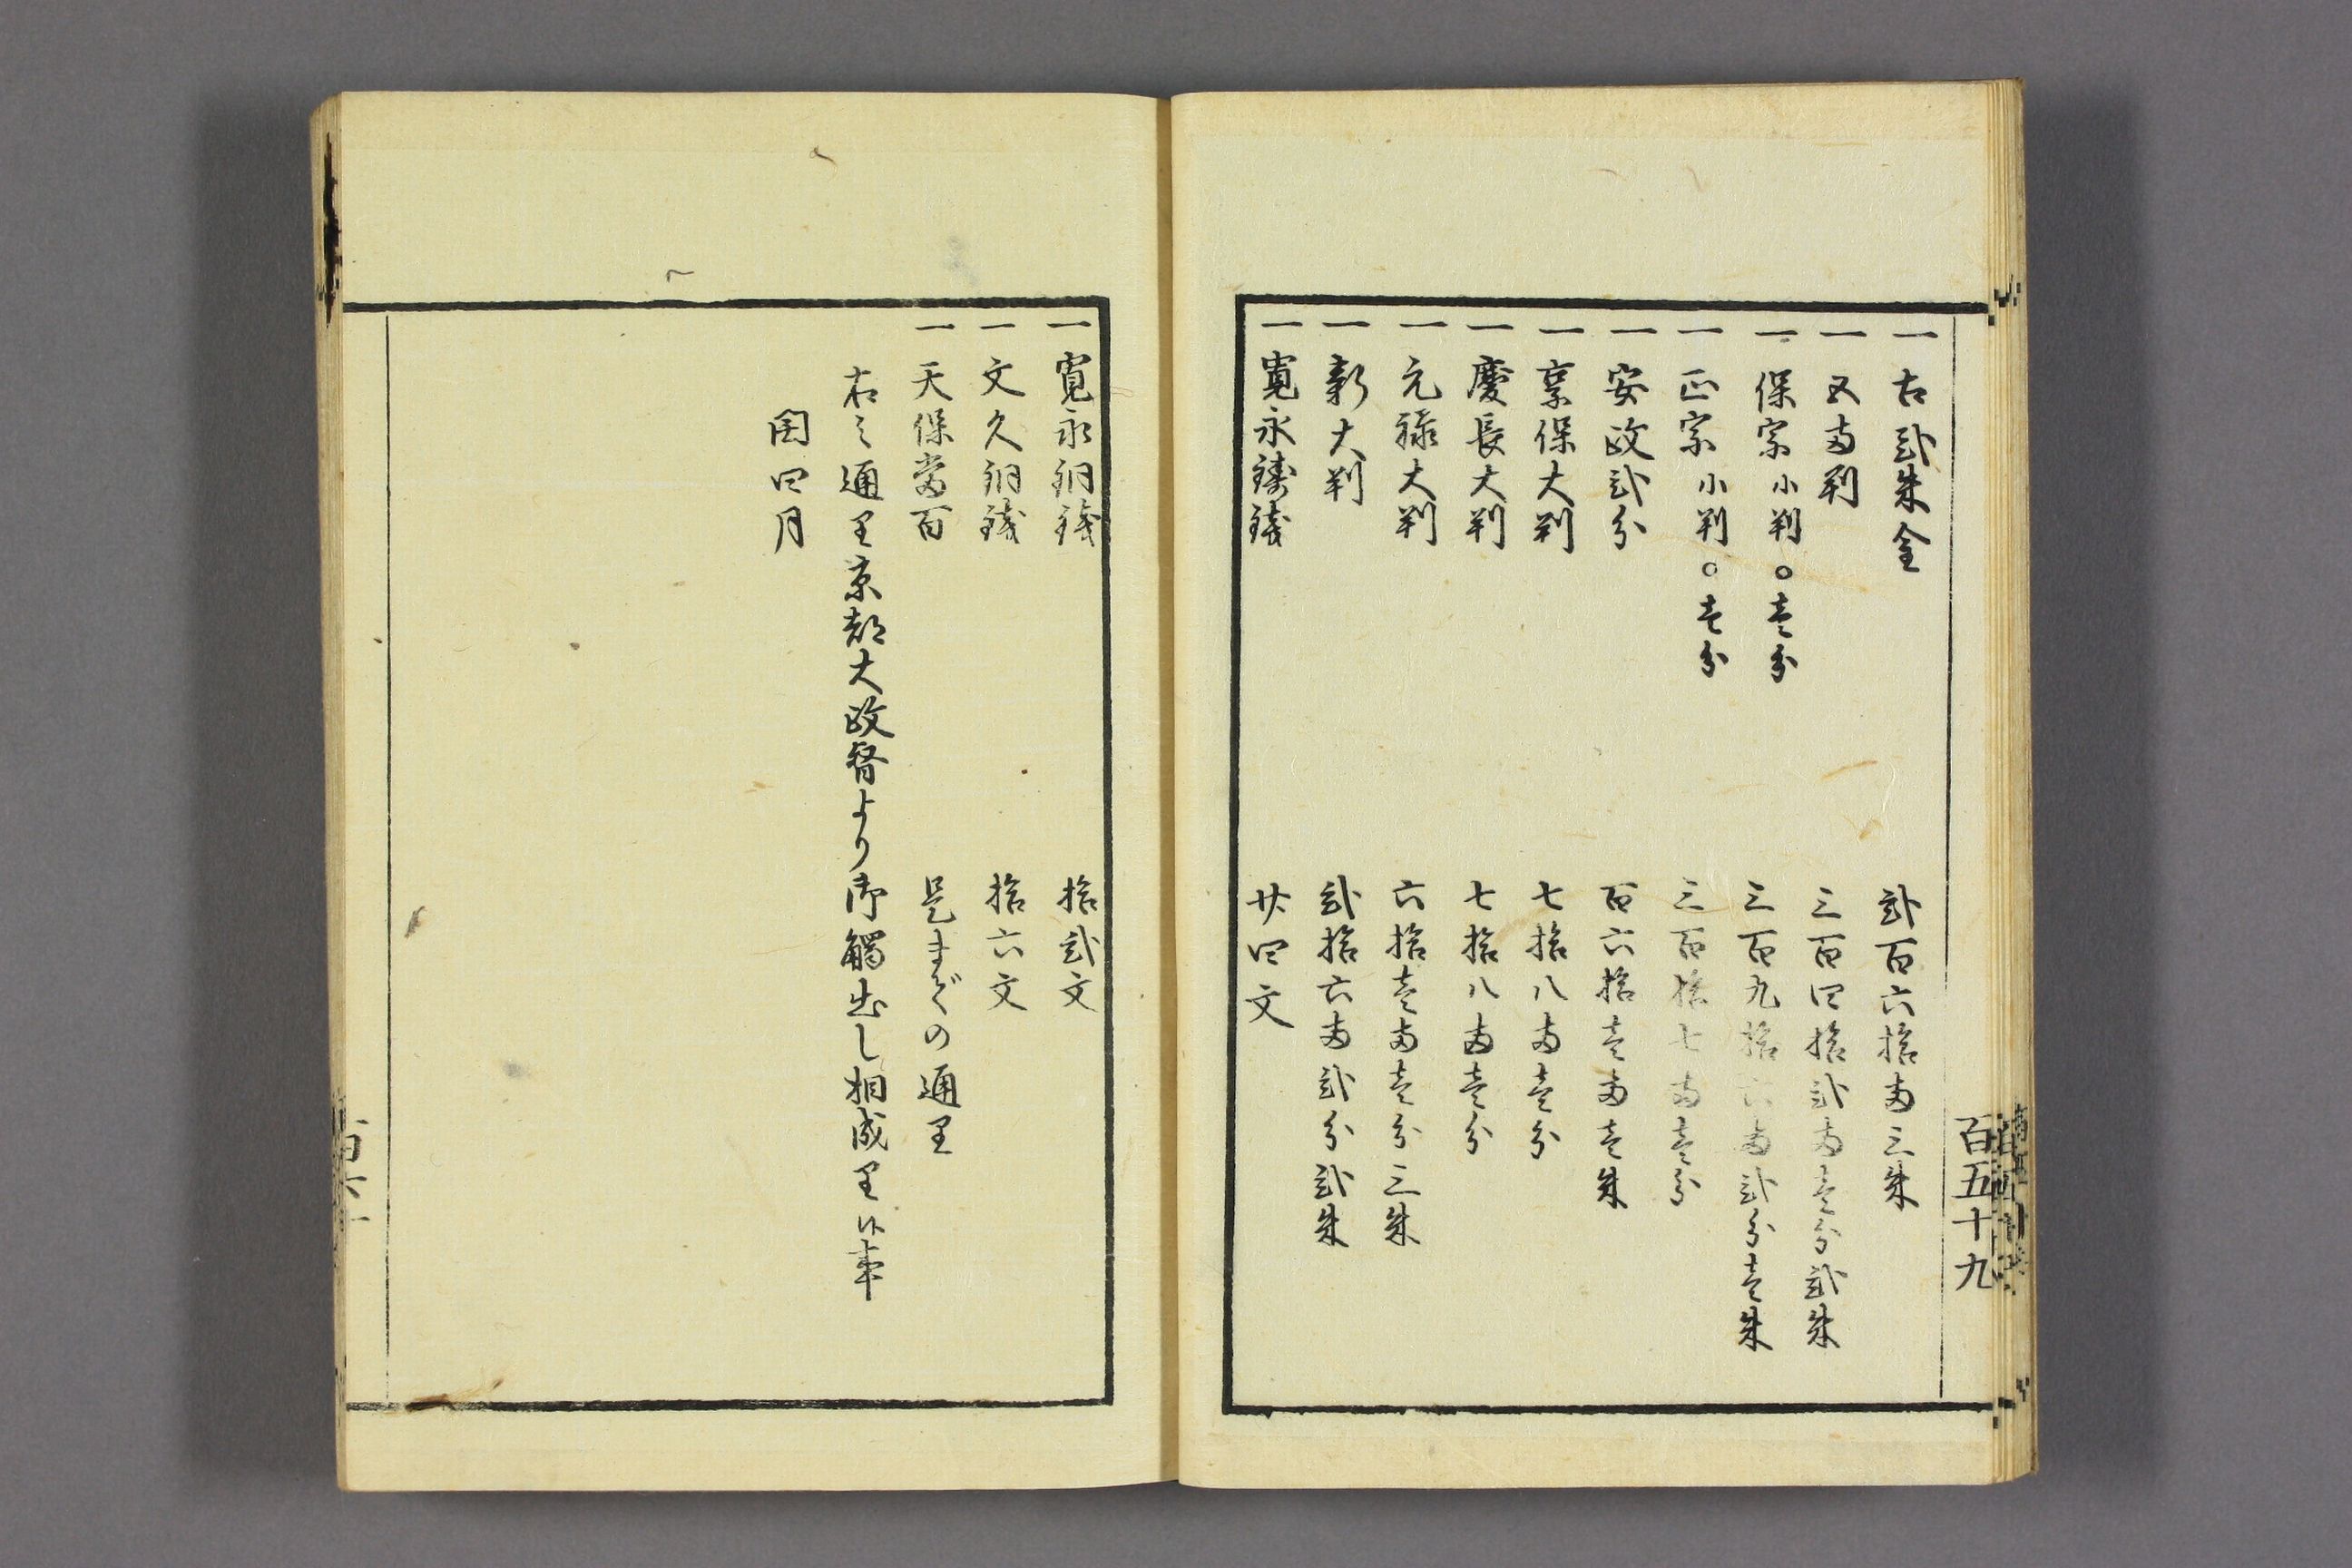 一 古弐朱金 弐百六拾両三朱
一 五両判 三百四拾弐両壱分弐朱
一 保字小判。壱分 三百九拾六両弐分壱朱
一 正字小判。壱分 三百拾七両壱分
一 安政弐分 百六拾壱両壱朱
一 享保大判 七拾八両壱分
一 慶長大判 七拾八両壱分
一 元禄大判 六拾壱両壱分三朱
一 新大判 弐拾六両弐分弐朱
一 寛永鋳銭 廿四文
百五十九
一 寛永銅銭 拾弐文
一 文久銅銭 拾六文
一 天保当百 是までの通り
右之通り京都大政督より御觸出し相成り候事
閏四月